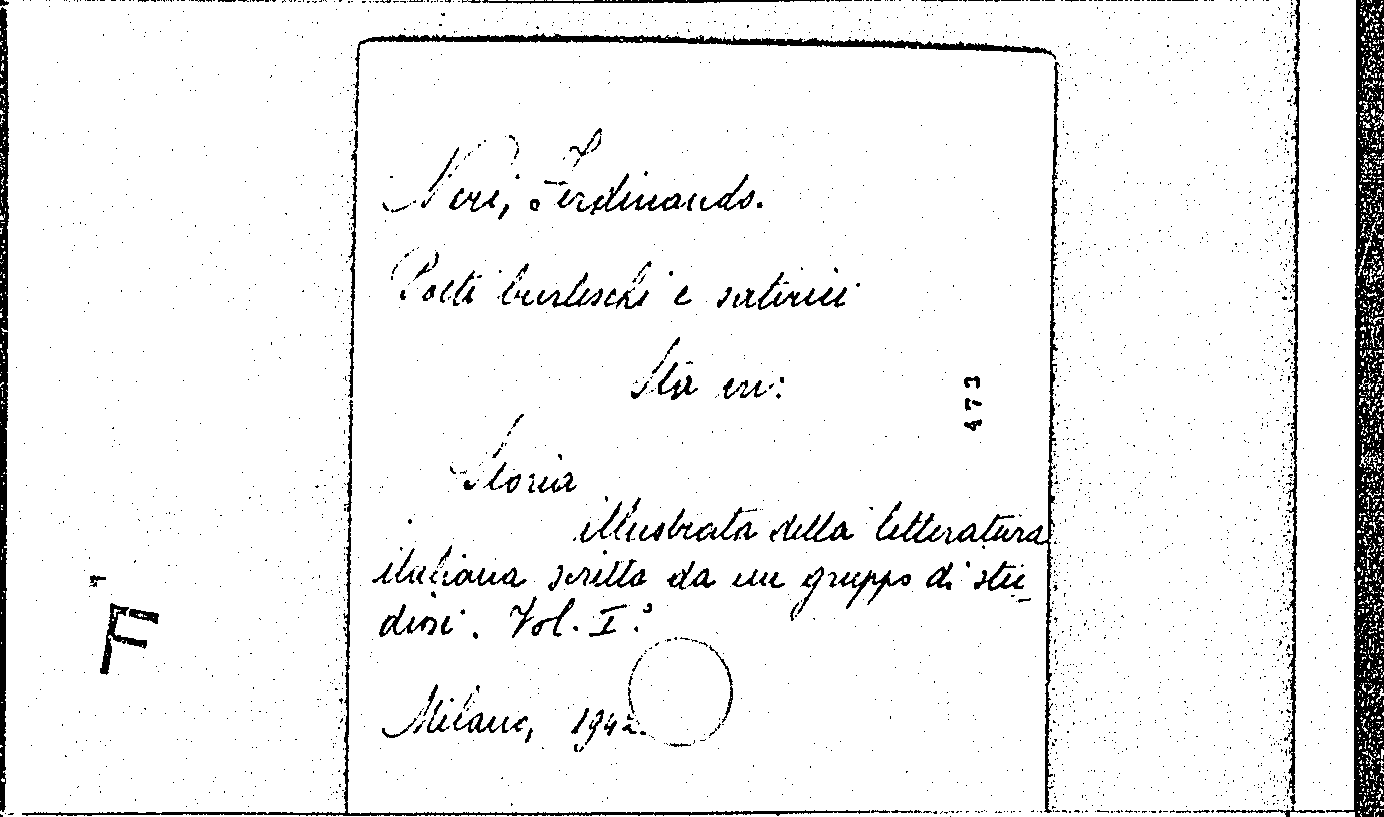 Neri, Ferdinando.
Poeti burleschi e satirici
Sta in:
473
Storia
illustrata della letteratura
italiana scritta da un gruppo di stu-
diosi. Vol. I°
Milano, 1942.
F